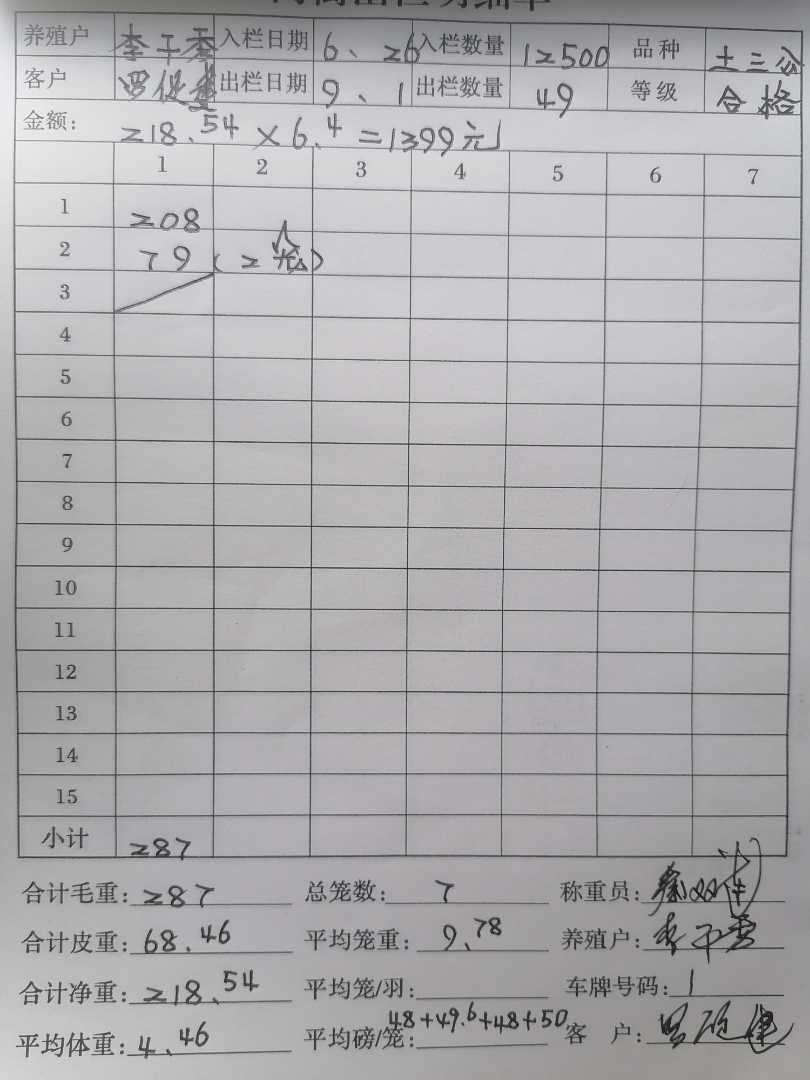 养殖户 李干秀 入栏日期 6、26 入栏数量 12500 品种 土三公
客户 罗 出栏日期 9、1 出栏数量 49 等级 合格
金额: 218.54×6.4=1399元
1 2 3 4 5 6 7
1 208
2 79 (2笼)
3
4
5
6
7
8
9
10
11
12
13
14
15
小计 287
合计毛重: 287 总笼数: 7 称重员:
合计皮重: 68.46 平均笼重: 9.78 养殖户: 李干秀
合计净重: 218.54 平均笼/羽: 车牌号码: 1
平均体重: 4.46 平均磅/笼: 48+49.6+48+50 客 户: